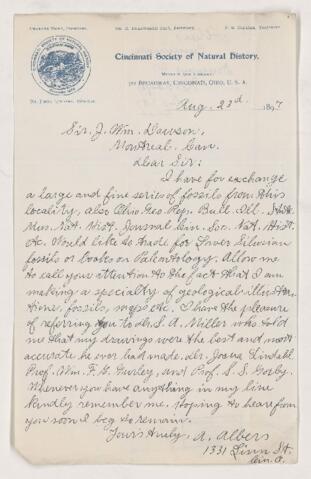 Cincinnati Society of Natural History,
Museum and Library:
312 Broadway, Cincinnati, Ohio, U. S. A.
Aug. 23d 1897
Sir. J. Wm. Dawson,
Montreal. Can.
Dear Sir:
I have for exchange
a large and fine series of fossils from this
locality, also Ohio Geo. Rep. Bull. Ill. State
Mus. Nat. Hist. Journal Cin. Soc. Nat. Hist.
&c. Would like to trade for Lower Silurian
fossils or books on Paleontology. Allow me
to call your attention to the fact that I am
making a specialty of geological illustra-
tions, fossils, maps &c. I have the pleasure
of refering you to Mr. S. A. Miller who told
me that my drawings were the best and most
accurate he ever had made. Dr. Josua Lindahl
Prof. Wm. F. E. Gurley, and Prof. S. S. Gorby.
Whenever you have anything in my line
kindly remember me. Hoping to hear from
you soon I beg to remain.
Yours truly, A. Albers
1331 Linn St.
Cin. O.